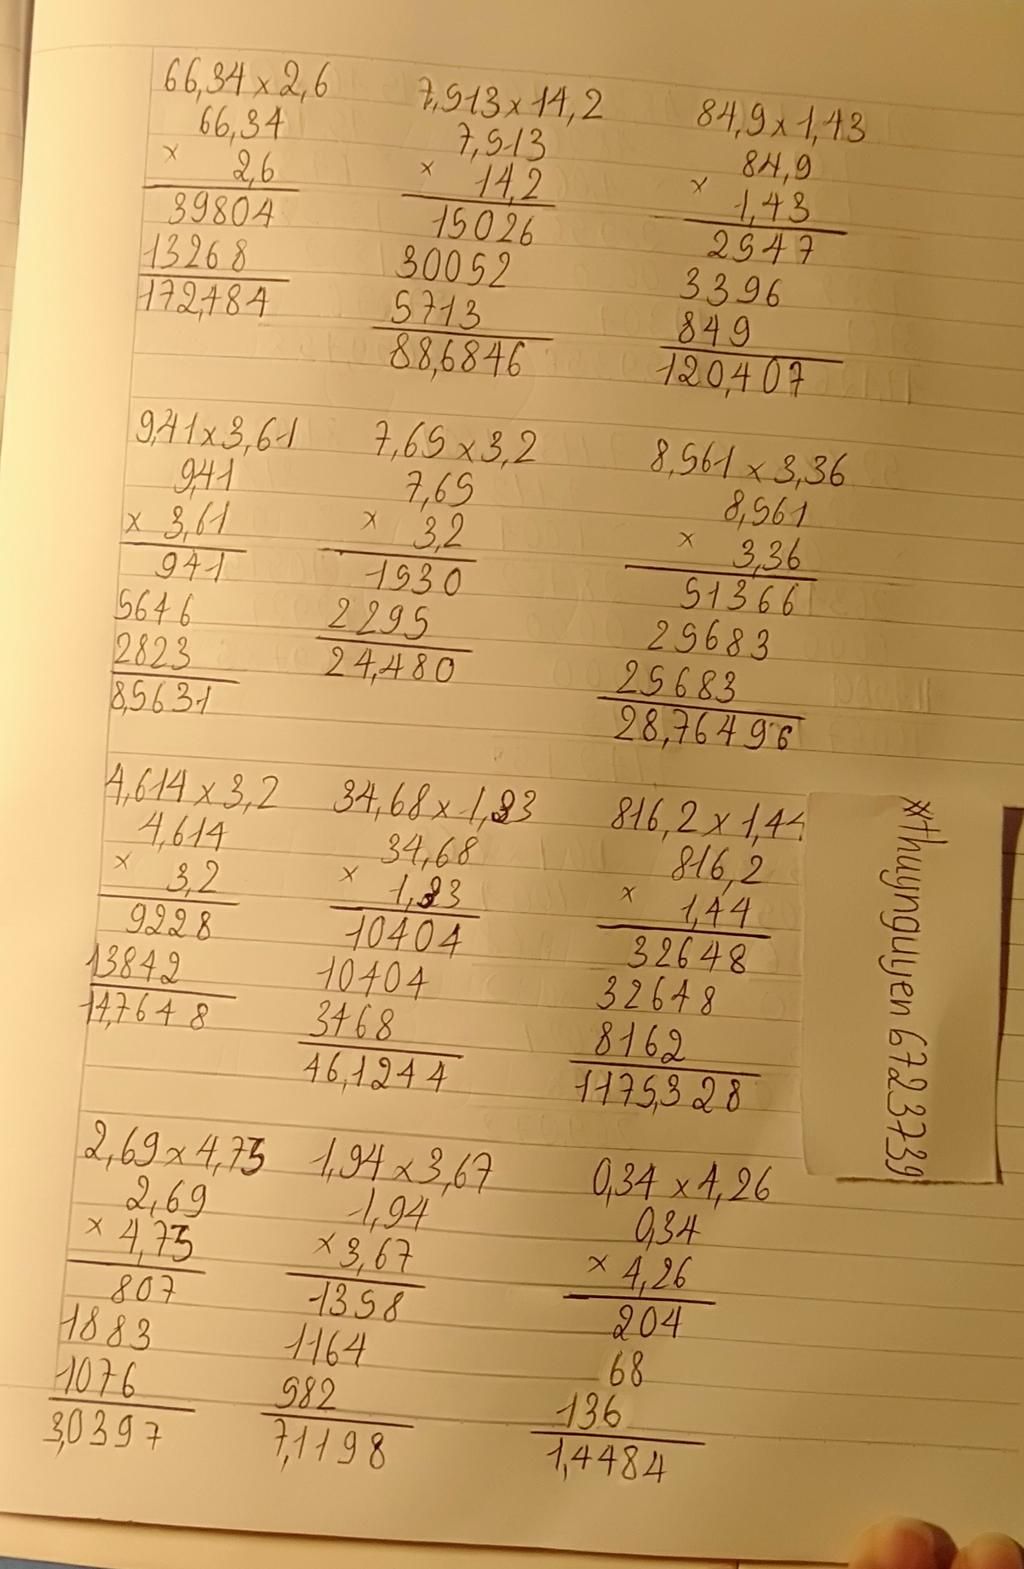 66,34 x 2,6
66,34
x 2,6
39804
13268
172,484
7,513 x 14,2
7,513
x 14,2
15026
30052
5713
88,6846
84,9 x 1,43
84,9
x 1,43
2547
3396
849
120,407
9,41 x 3,61
9,41
x 3,61
941
5646
2823
8,5631
7,65 x 3,2
7,65
x 3,2
1530
2295
24,480
8,561 x 3,36
8,561
x 3,36
51366
25683
25683
28,76496
4,614 x 3,2
4,614
x 3,2
9228
13842
14,7648
34,68 x 1,33
34,68
x 1,33
10404
10404
3468
46,1244
816,2 x 1,44
816,2
x 1,44
32648
32648
8162
1175,328
2,69 x 4,73
2,69
x 4,73
807
1883
1076
3,0397
1,94 x 3,67
1,94
x 3,67
1358
1164
582
7,1198
0,34 x 4,26
0,34
x 4,26
204
68
136
1,4484
#thuynguyen6723739